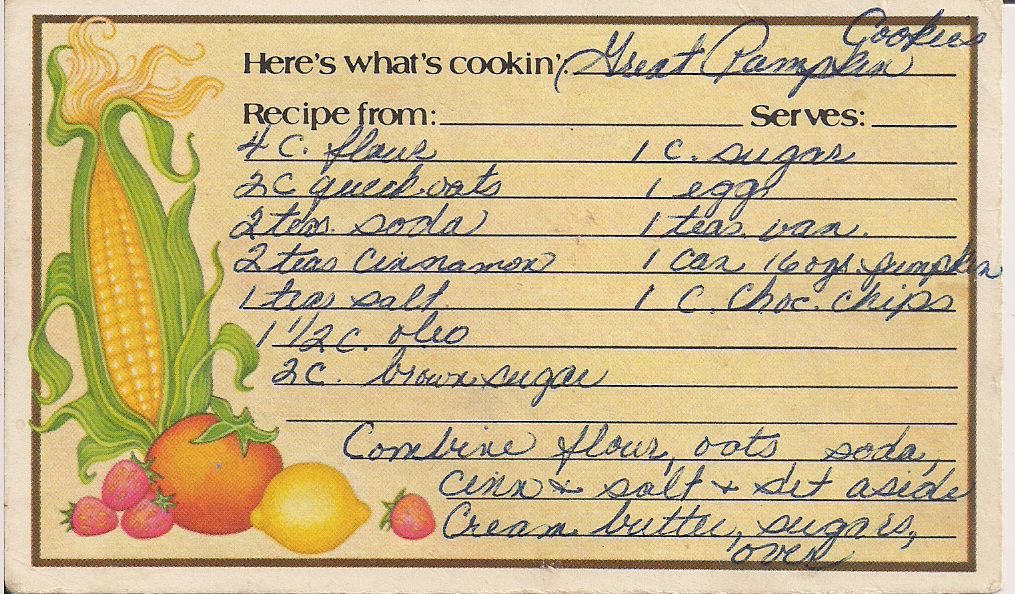 Cookies
Here's what's cookin': Great Pumpkin
Recipe from: Serves:
4 C. flour 1 C. sugar
2 C quick oats 1 egg
2 teas. soda 1 teas. van.
2 teas cinnamon 1 can 16 ozs. pumpkin
1 teas salt 1 C. choc. chips
1 1/2 c. oleo
2 c. brown sugar
Combine flour, oats soda,
cinn & salt & set aside
Cream butter, sugars,
over